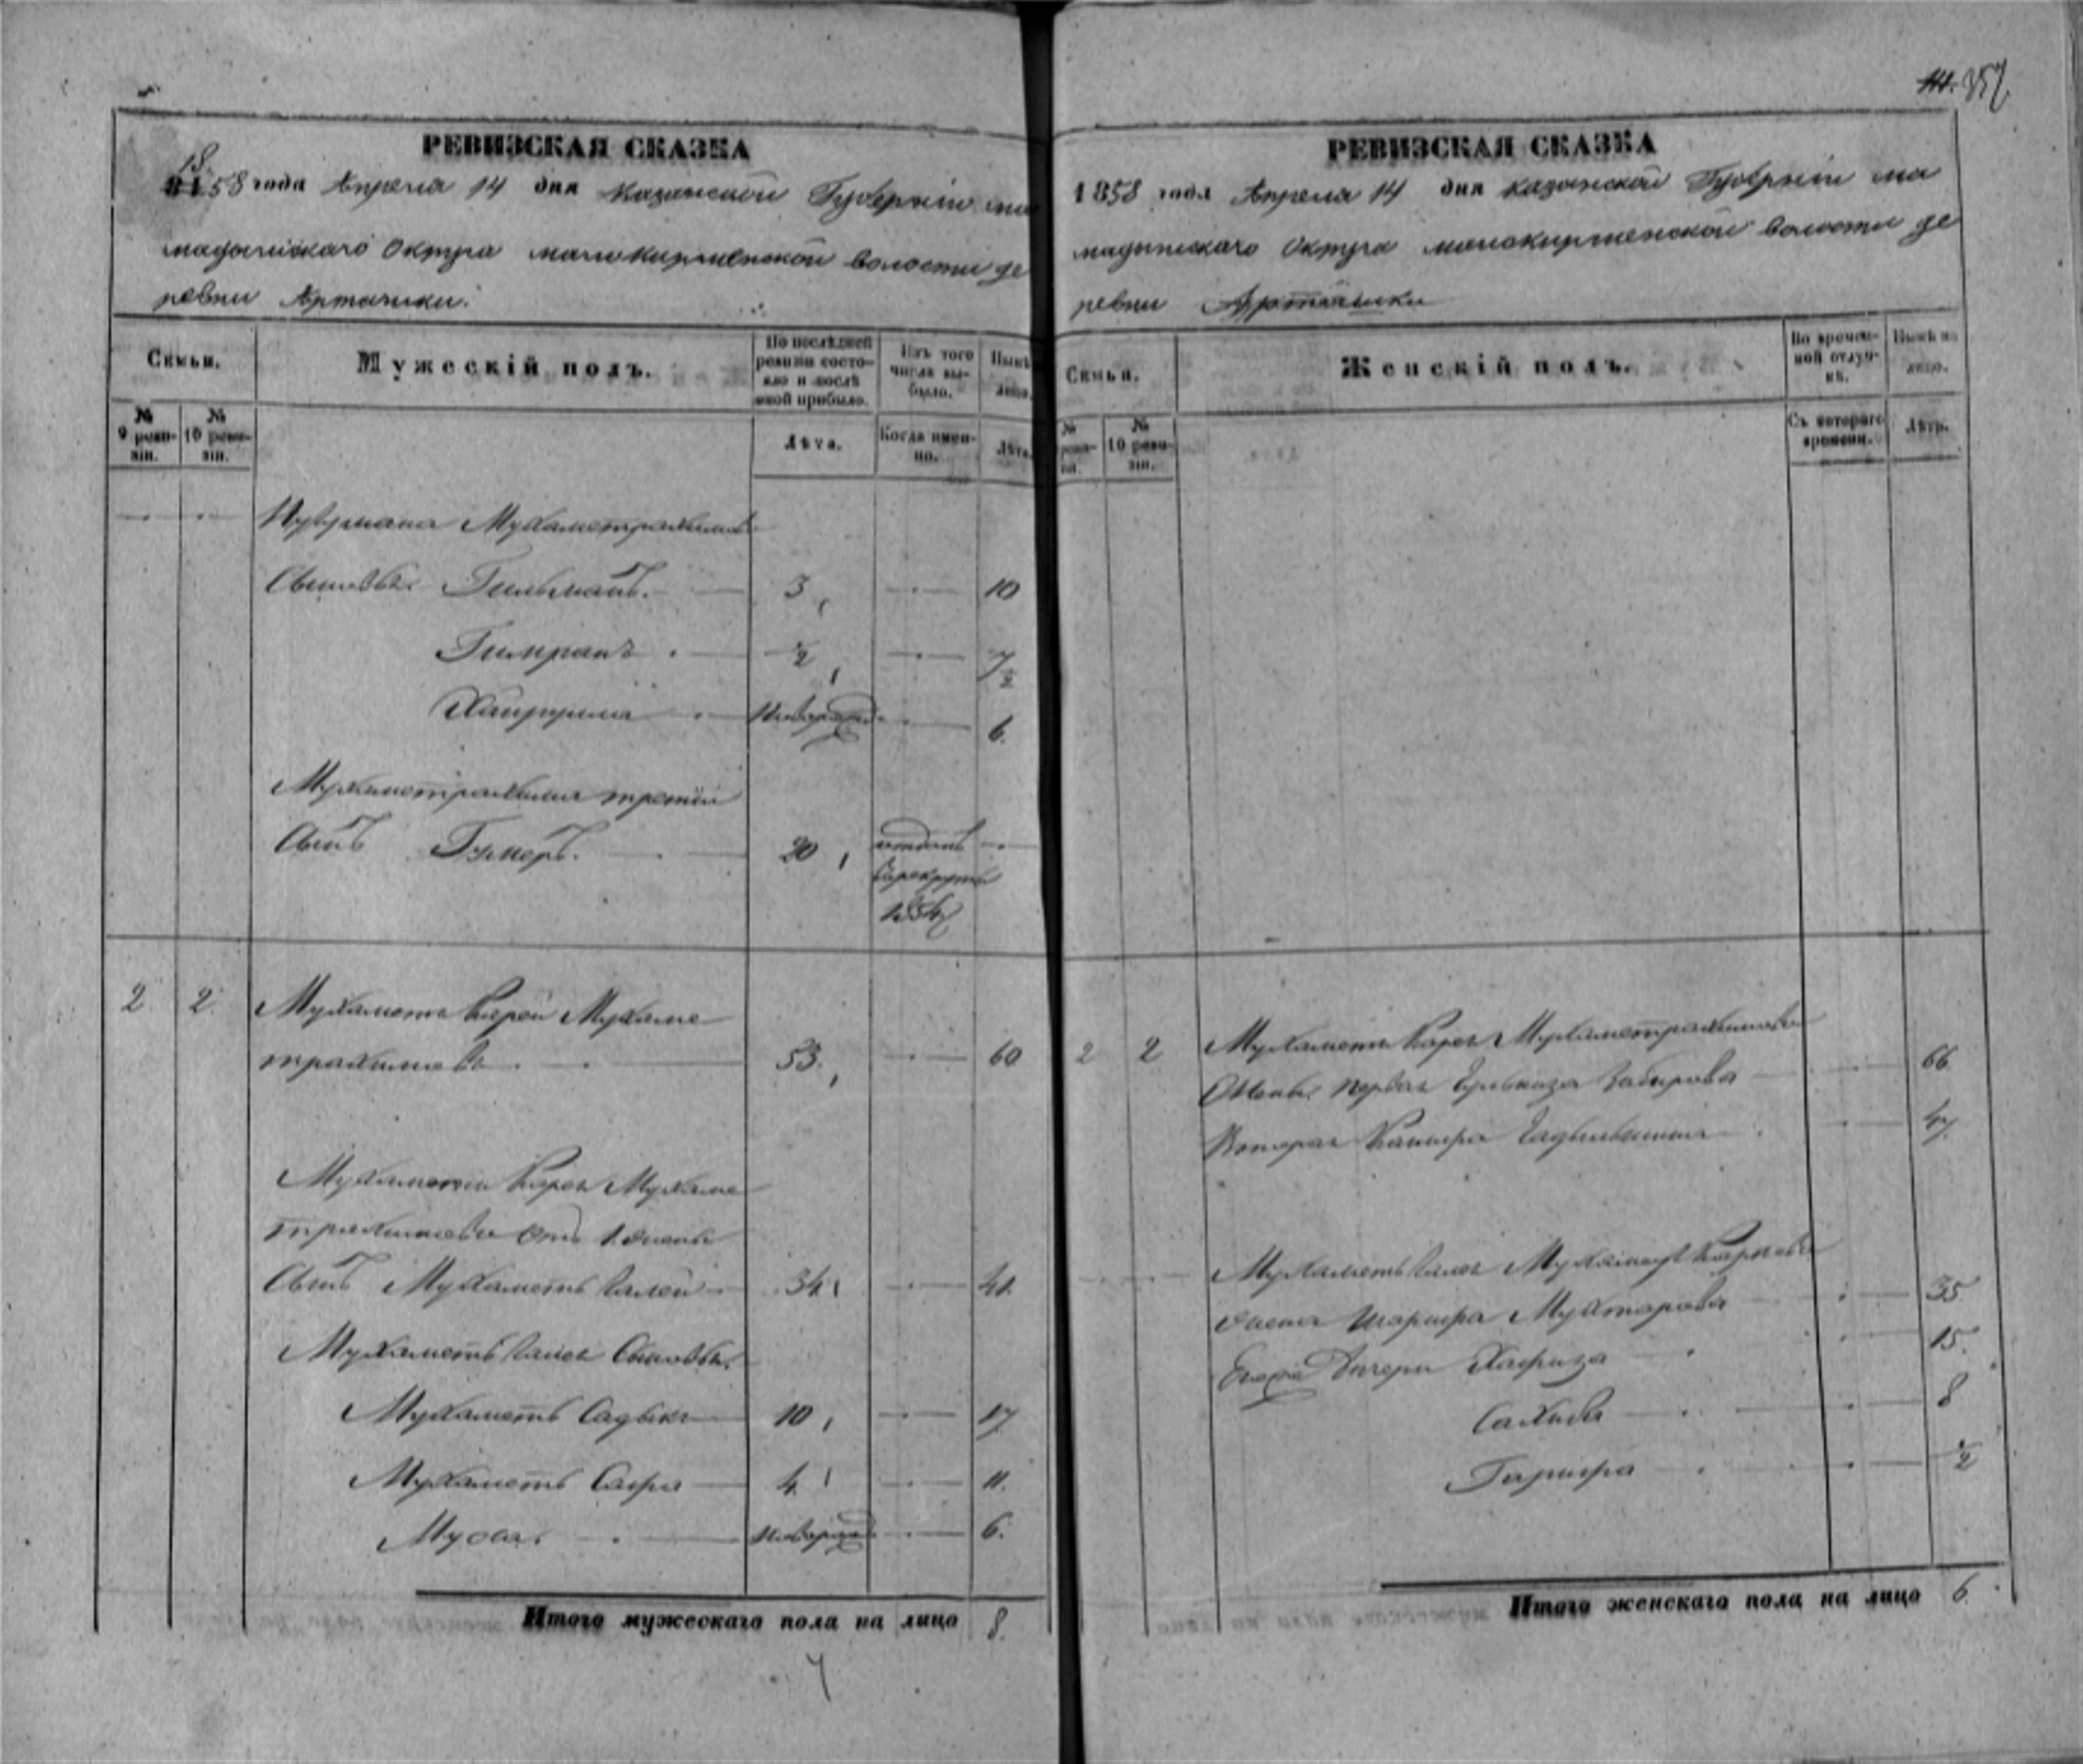 357
РЕВИЗСКАЯ СКАЗКА
1858 года Апреля 14 дня Казанской Губернiи ма
мадышскаго Округа малокирменской волости де
ревни Арташки.
Семьи.
Мужескій полъ.
По послѣдней ревизіи состояло и послѣ оной прибыло.
Изъ того числа выбыло.
Нынѣ на лицо.
№ 9 ревизіи.
№ 10 ревизіи.
Лѣта.
Когда именно.
Лѣта.
Мухаметрахимова
Сыновья Гильманъ. 3 10
Гимранъ ½ 7½
6.
Мухаметрахима третій
Сынъ Гумеръ. 20 отданъ
в рекруты
1854
2 2 Мухаметъ Карей Мухаме
трахимовъ 53. 60
Мухаметъ Карея Мухаме
трахимова отъ 1 жены
Сынъ Мухаметъ Галей 34 41.
Мухаметъ Галея Сыновья.
Мухаметъ Садыкъ 10 17
Мухаметъ Сафа 4. 11.
Муса. новорож 6.
Итого мужескаго пола на лицо 8.
РЕВИЗСКАЯ СКАЗКА
1858 года Апреля 14 дня Казанской Губернiи ма
мадышскаго Округа малокирменской волости де
ревни Арташки
Семьи.
Женскій полъ.
Во временной отлучкѣ.
Нынѣ на лицо.
№ 10 ревизіи.
Съ котораго времени.
Лѣта.
2 2 Мухаметъ Карея Мухаметрахимова
жены первая Гульниза Забирова 66
Вторая 47
Мухаметъ Галея Мухамет Кареева
жена Шарифа Мухтарова 35
Его Дочери Хафиза 15.
Сахиба 8
Гарифа ½
Итого женскаго пола на лицо 6.